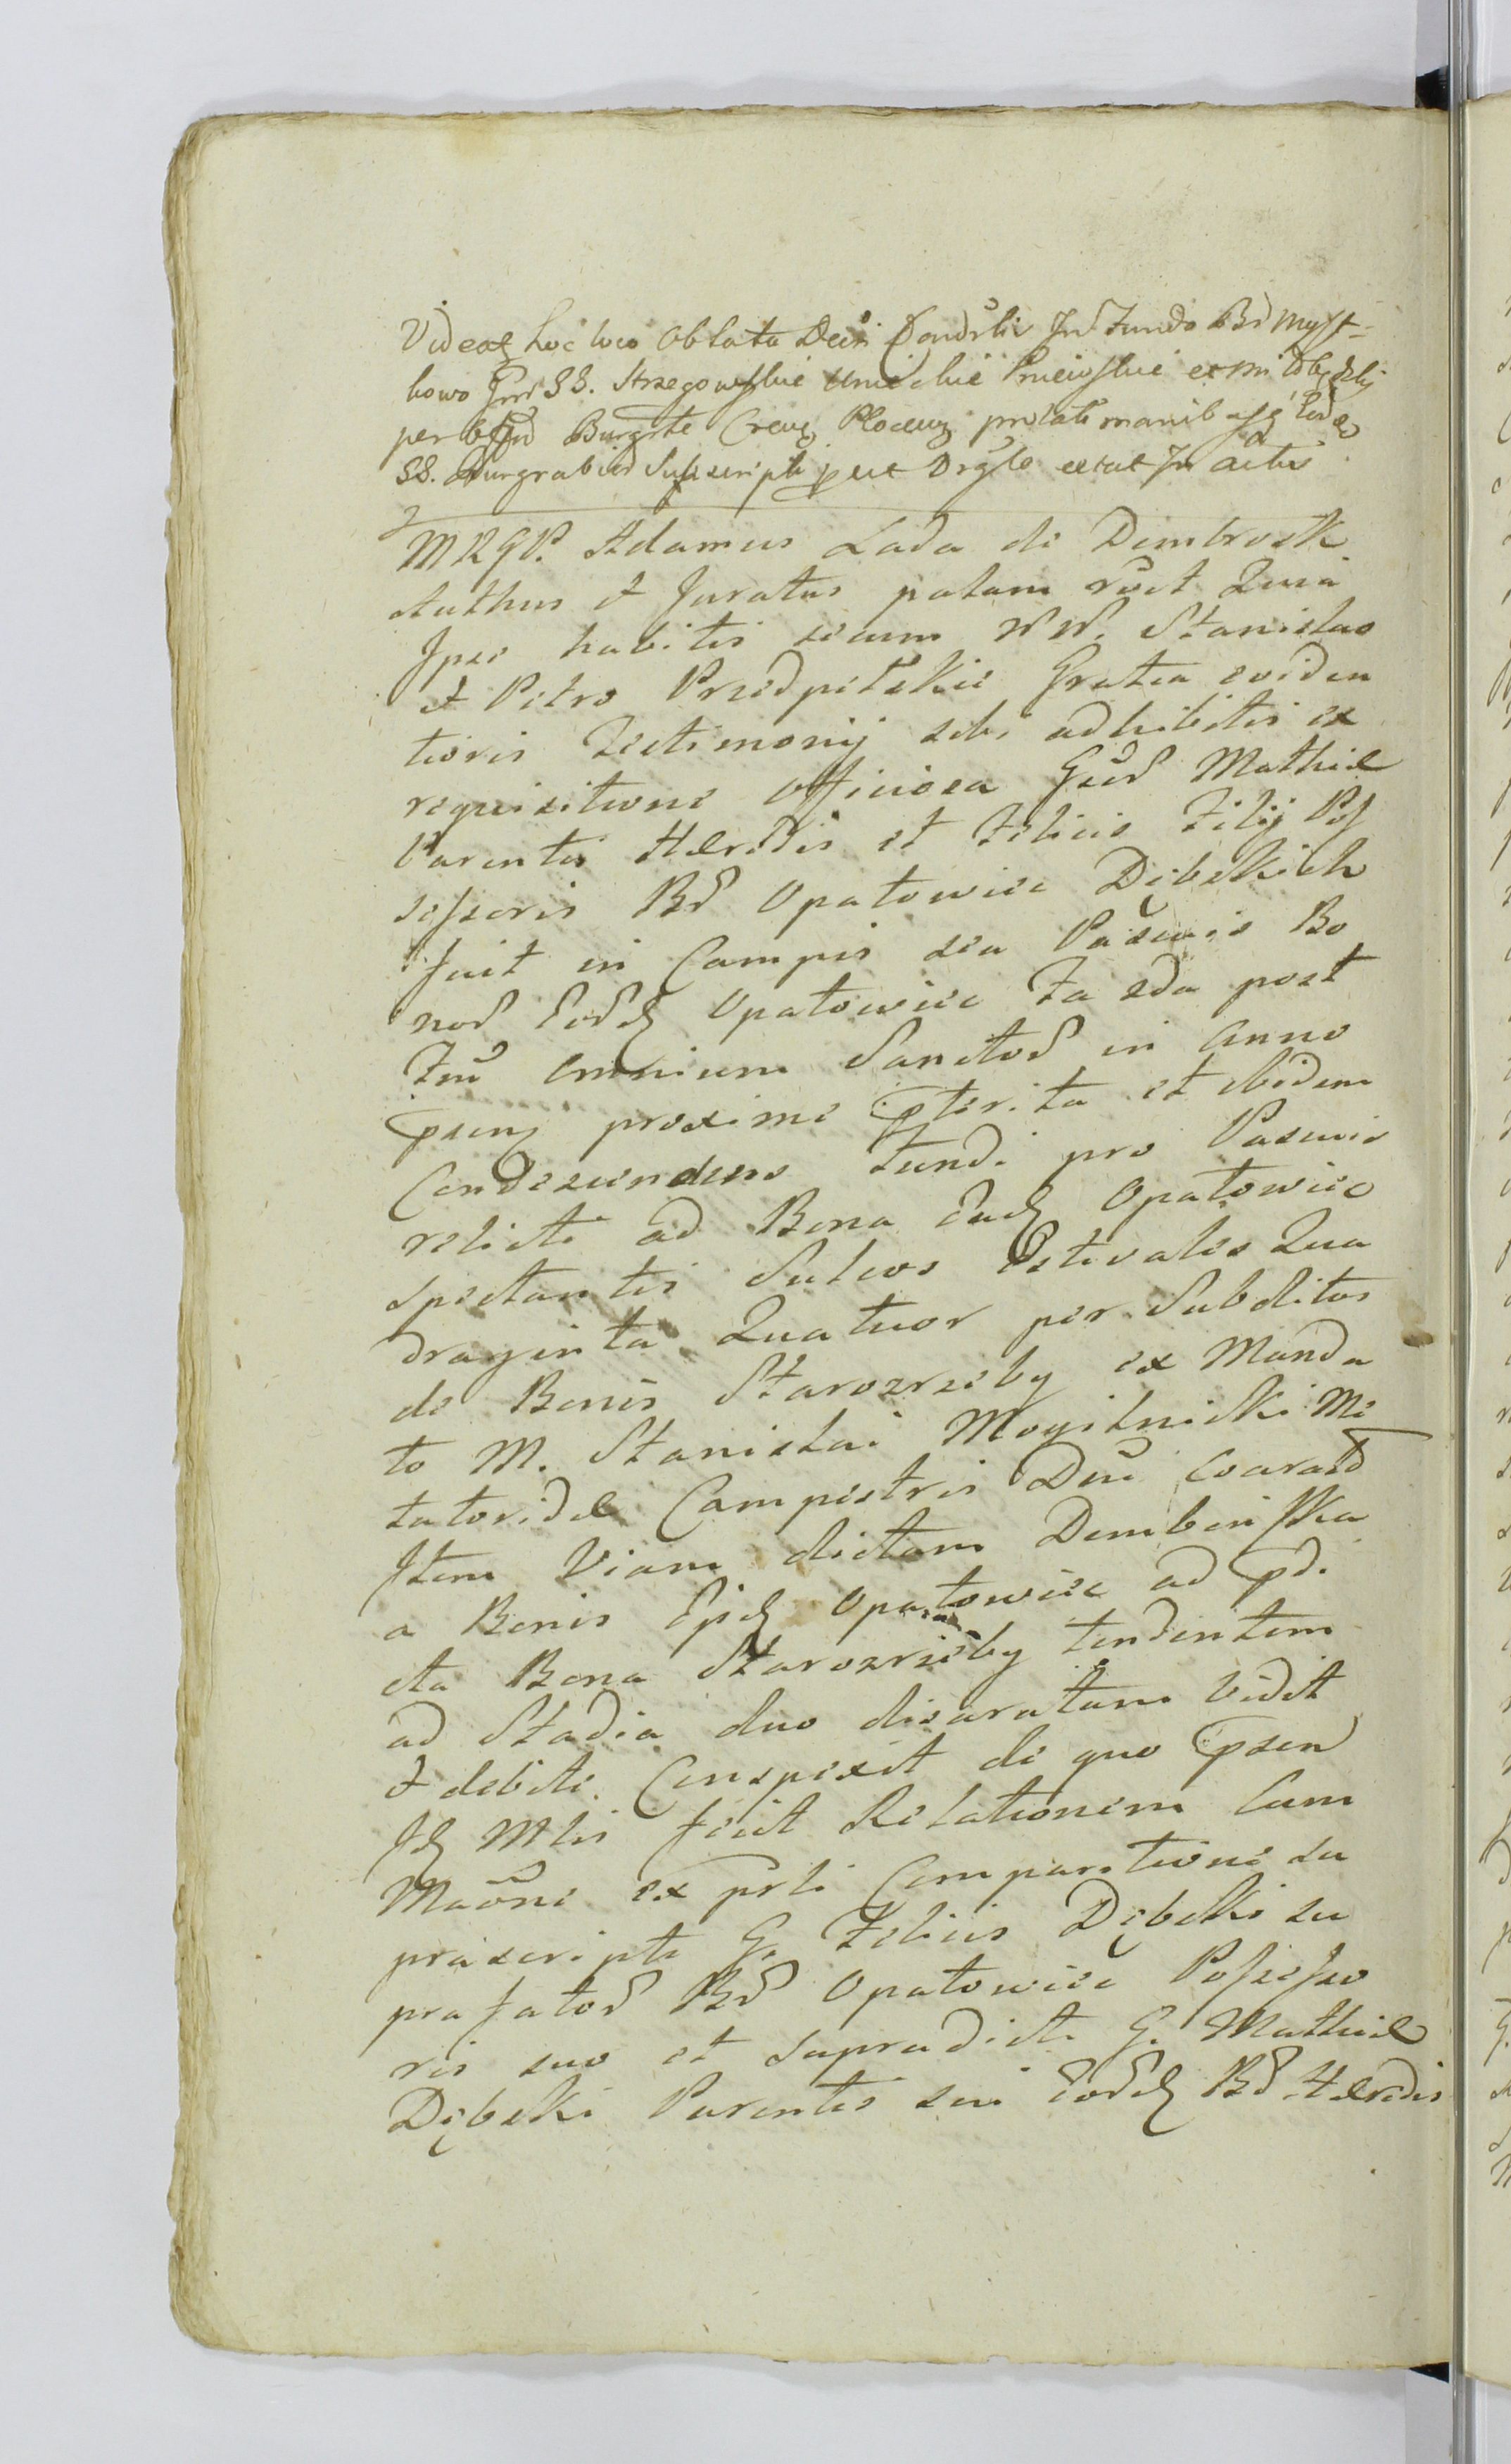 Videat hoc loco Oblata Decri Condsclis In Fundo Bd Mysz-
kowo Inr SS. Strzegowskie Umieskie
per Burgrle Crens Plocens prolati manib
SS. Burgrabior Subscripti put Orgle extat In actis
MRGP. Adamus Łada de Dembrosk
Authus et Juratus palam rcit Quia
Ipse habitis secum NN. Stanislao
et Petro Przedpełskie Gratia eviden
tioris Testimonij sibi adhibitis ex
requisitione Officiosa Gsor Mathiæ
Parentis Hæredis et Felicis Filij Pos
sessoris Bd Opatowiec Dębskich
fuit in Campis seu Pascuis Bo
nor Eord Opatowiec Fa 2da post
Ftu Omnium Sanctor in Anno
psenq proxime pterita et ibidem
Condescendens Fundi pro Pascuis
relicti ad Bona Ead Opatowiec
spectantis Sulcos Estivales Qua
draginta Quatuor per Subditos
de Bonis Starozreby ex Manda
to M. Stanislai Mogilnicki Me
tatoridæ Campestris Dni coarato
Item Viam dictam Dembinska
a Bonis Eisd Opatowiec ad pdi
cta Bona Starozreby tendentem
ad Stadia duo disaratam Vidit
& debite Conspexit de quo psen
Id Mlis fecit Relationem Cum
Maōne ex prli Comparitione su
prascripti G. Felicis Dębski su
prafator Bd Opatowiec Possesso
ris suo et Supradicti G. Mathiæ
Dębski Parentis sui Eord Bd Hæredis